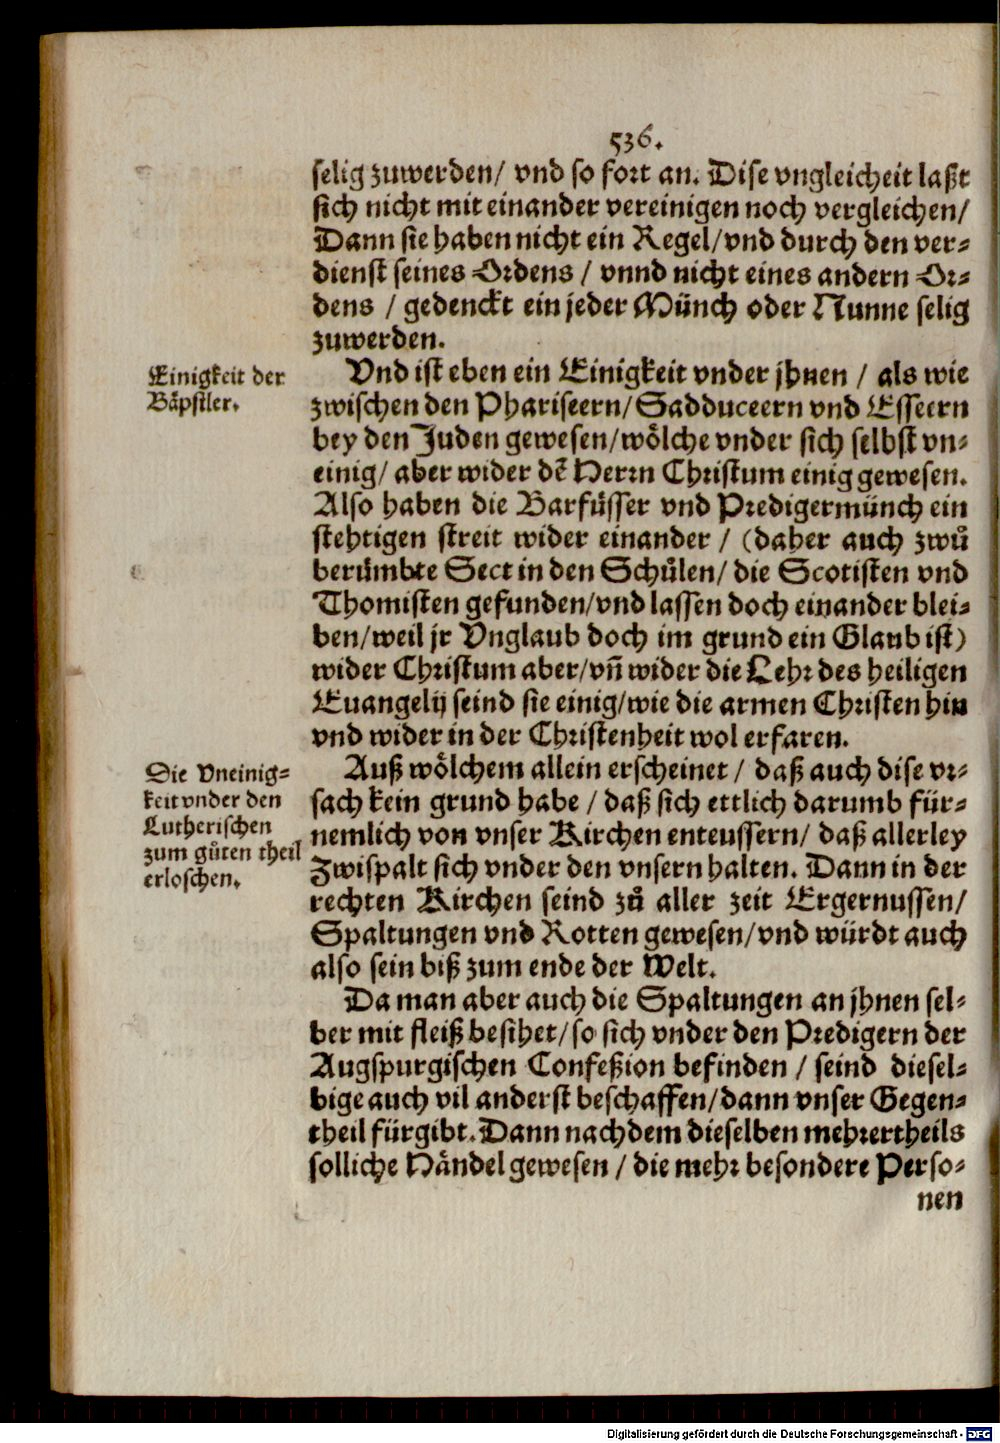 536.
selig zuwerden/ vnd so fort an. Dise vngleicheit laßt
sich nicht mit einander vereinigen noch vergleichen/
Dann sie haben nicht ein Regel/vnd durch den ver-
dienst seines Ordens / vnnd nicht eines andern Or-
dens / gedenckt ein jeder Münch oder Nunne selig
zuwerden.
Einigkeit der
Bäpstler.
Vnd ist eben ein Einigkeit vnder jhnen / als wie
zwischen den Phariseern/Sadduceern vnd Esseern
bey den Juden gewesen/wölche vnder sich selbst vn-
einig/ aber wider dē Herrn Christum einig gewesen.
Also haben die Barfüsser vnd Predigermünch ein
stehtigen streit wider einander / (daher auch zwů
berümbte Sect in den Schůlen/ die Scotisten vnd
Thomisten gefunden/vnd lassen doch einander blei-
ben/weil jr Vnglaub doch im grund ein Glaub ist)
wider Christum aber/vñ wider die Lehr des heiligen
Euangelij seind sie einig/wie die armen Christen hin
vnd wider in der Christenheit wol erfaren.
Die Vneinig-
keit vnder den
Lutherischen
zum gůten theil
erloschen.
Auß wölchem allein erscheinet / daß auch dise vr-
sach kein grund habe / daß sich ettlich darumb für-
nemlich von vnser Kirchen enteussern/ daß allerley
Zwispalt sich vnder den vnsern halten. Dann in der
rechten Kirchen seind zů aller zeit Ergernussen/
Spaltungen vnd Rotten gewesen/vnd würdt auch
also sein biß zum ende der Welt.
Da man aber auch die Spaltungen an jhnen sel-
ber mit fleiß besihet/so sich vnder den Predigern der
Augspurgischen Confeßion befinden / seind diesel-
bige auch vil anderst beschaffen/dann vnser Gegen-
theil fürgibt. Dann nachdem dieselben mehrertheils
solliche Händel gewesen / die mehr besondere Perso-
nen
Digitalisierung gefördert durch die Deutsche Forschungsgemeinschaft - DFG